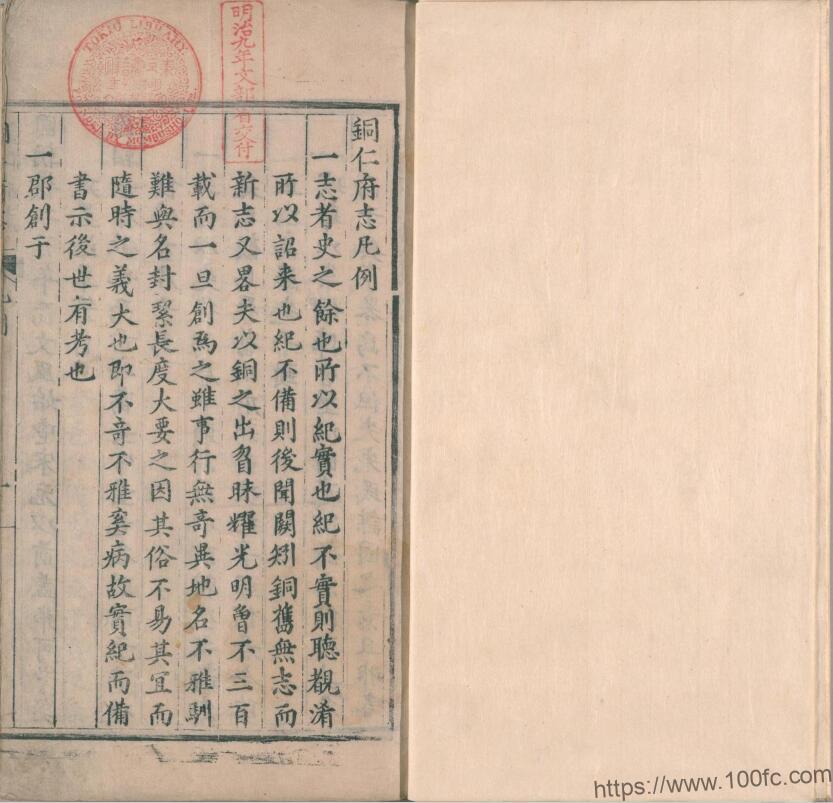 銅仁府志凡例
一志者史之餘也所以紀實也紀不實則聽覩淆
所以詔来也紀不備則後聞闕矧銅舊無志而
新志又畧夫以銅之出昏昧耀光明曾不三百
載而一旦創爲之雖事行無竒異地名不雅馴
難與名封緊長度大要之因其俗不易其宜而
隨時之義大也即不竒不雅奚病故實紀而備
書示後世有考也
一郡創于
明治九年文部省交付
TOKIO LIBRARY
https://www.100fc.com